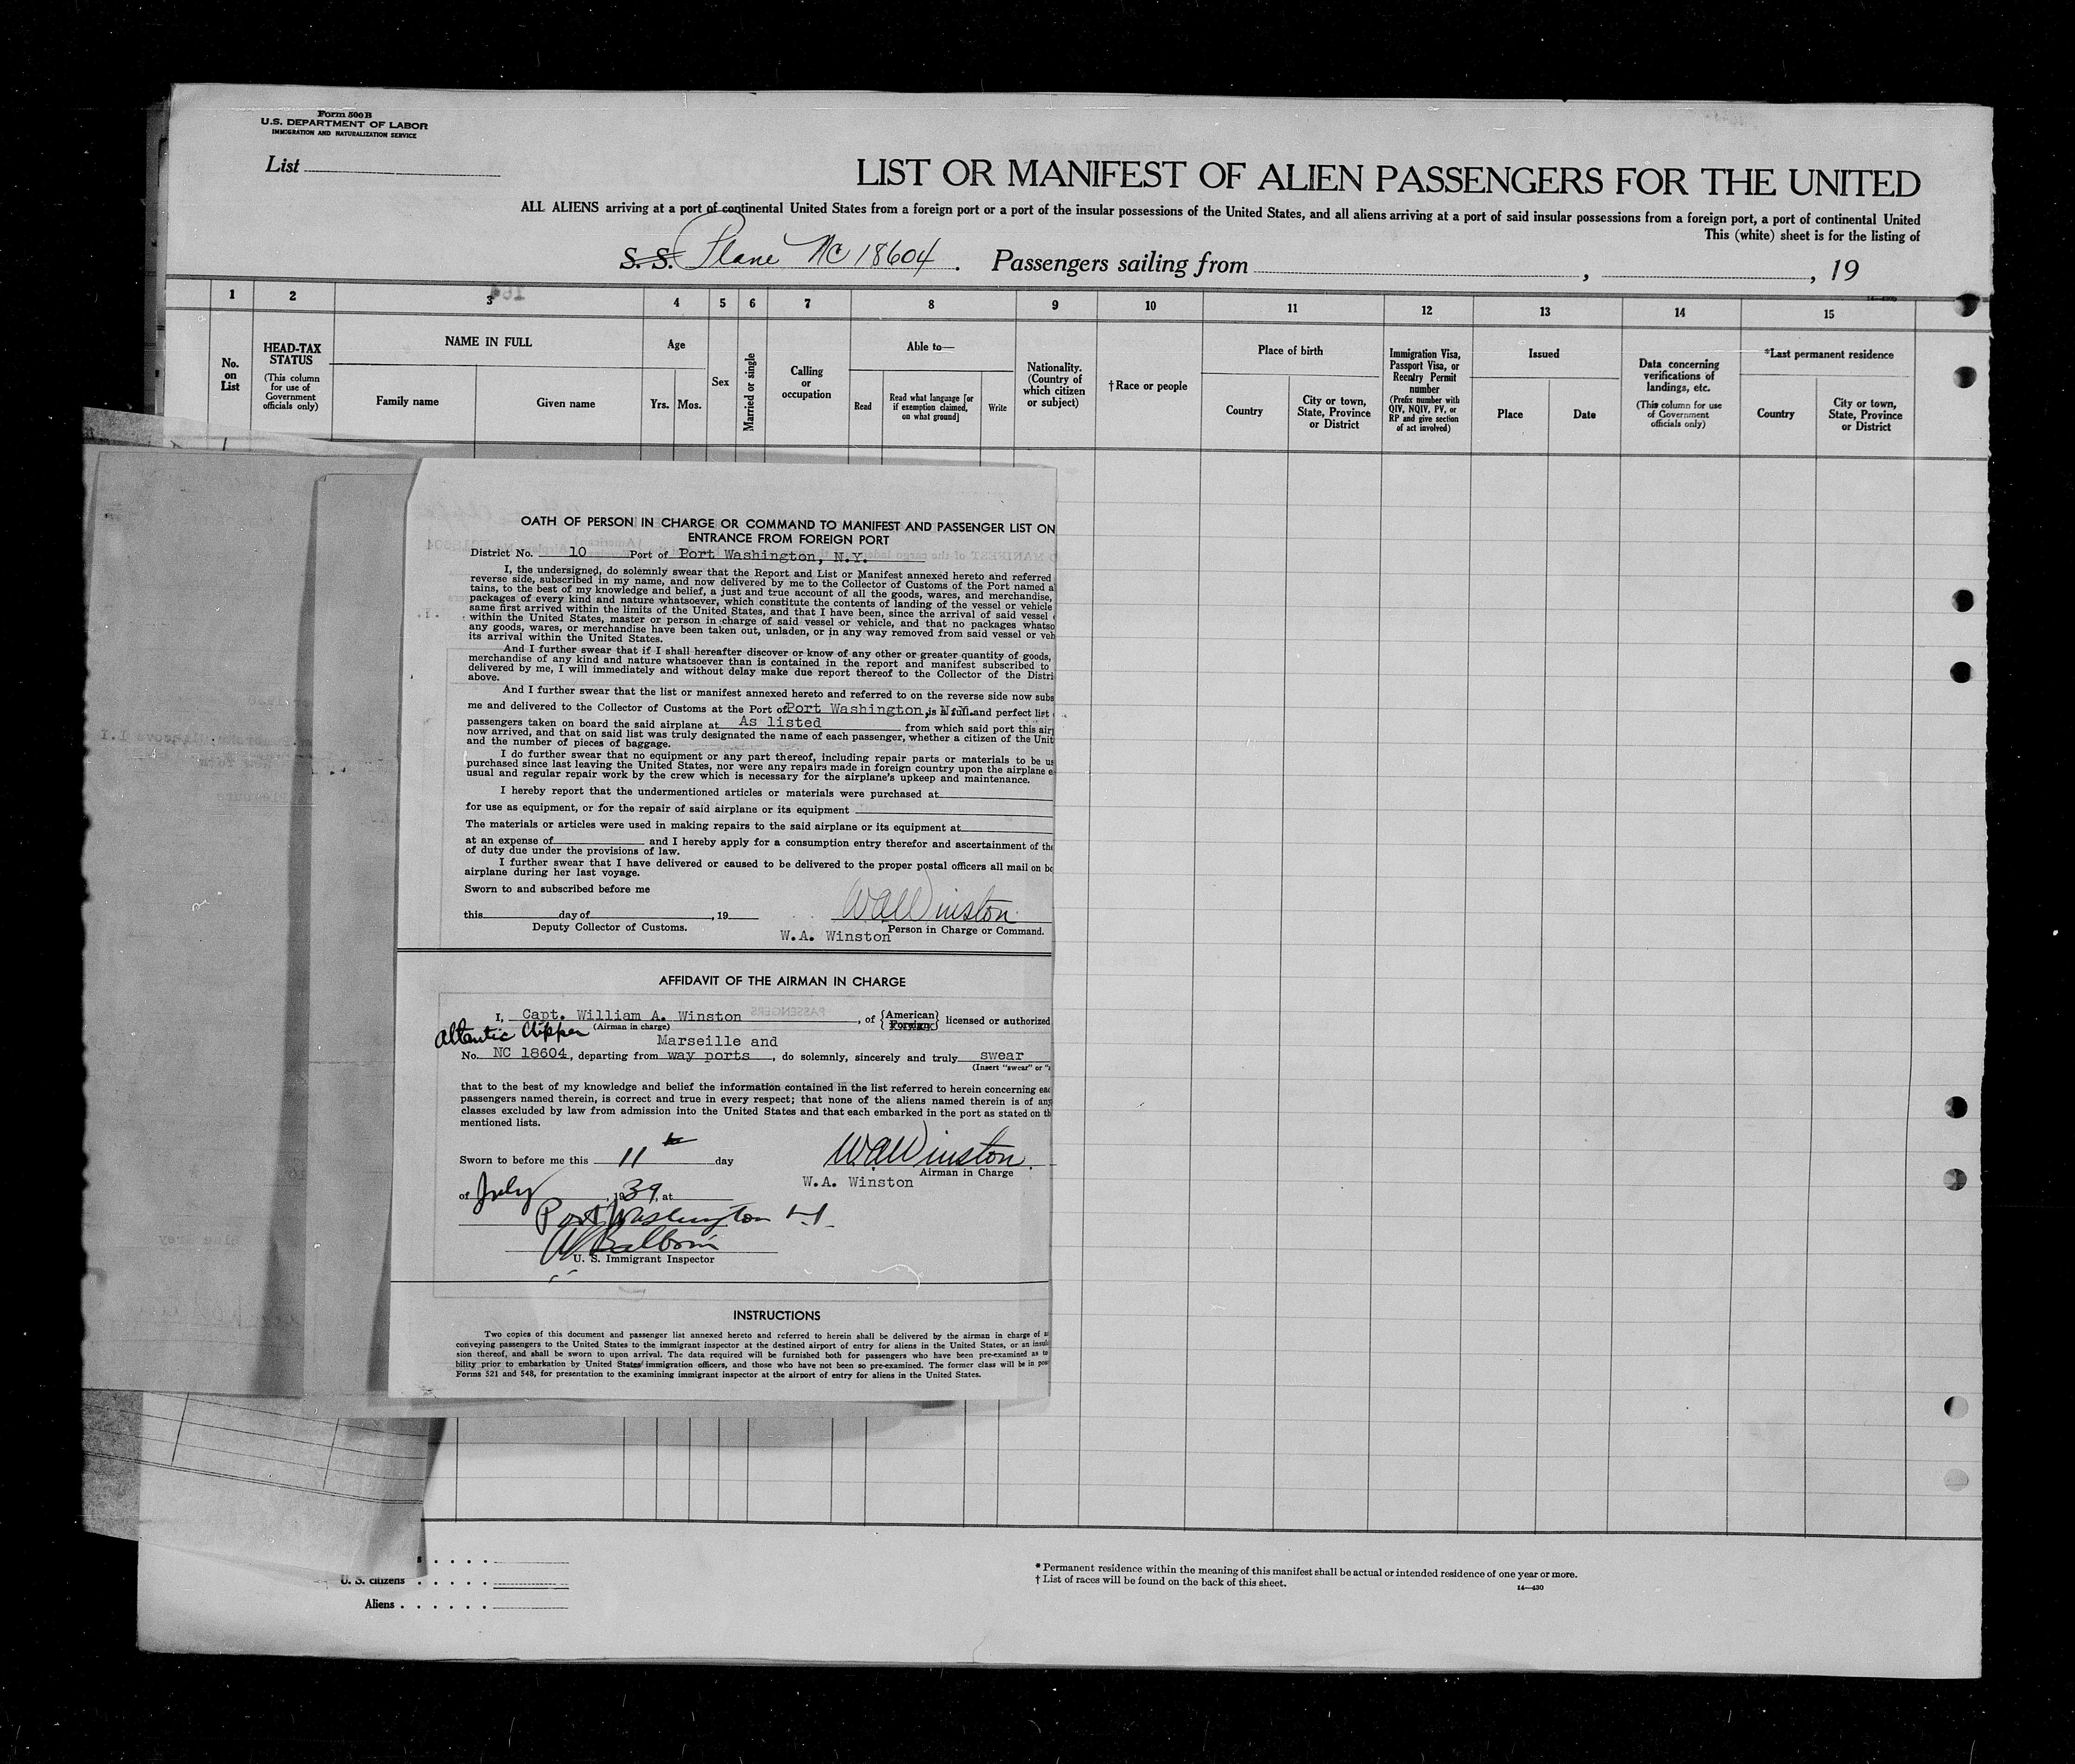 Form 500 B
U.S. DEPARTMENT OF LABOR
IMMIGRATION AND NATURALIZATION SERVICE
List
LIST OR MANIFEST OF ALIEN PASSENGERS FOR THE UNITED
ALL ALIENS arriving at a port of continental United States from a foreign port or a port of the insular possessions of the United States, and all aliens arriving at a port of said insular possessions from a foreign port, a port of continental United
This (white) sheet is for the listing of
S. S. Plane NC 18604. Passengers sailing from , , 19
1 2 3 4 5 6 7 8 9 10 11 12 13 14 15
No. on List
HEAD-TAX STATUS
(This column for use of Government officials only)
NAME IN FULL
Family name
Given name
Age
Yrs.
Mos.
Sex
Married or single
Calling or occupation
Able to—
Read
Read what language [or if exemption claimed, on what ground]
Write
Nationality. (Country of which citizen or subject)
†Race or people
Place of birth
Country
City or town, State, Province or District
Immigration Visa, Passport Visa, or Reentry Permit number
(Prefix number with QIV, NQIV, PV, or RP and give section of act involved)
Issued
Place
Date
Data concerning verifications of landings, etc.
(This column for use of Government officials only)
*Last permanent residence
Country
City or town, State, Province or District
OATH OF PERSON IN CHARGE OR COMMAND TO MANIFEST AND PASSENGER LIST ON
ENTRANCE FROM FOREIGN PORT
District No. 10 Port of Port Washington, N.Y.
I, the undersigned, do solemnly swear that the Report and List or Manifest annexed hereto and referred
reverse side, subscribed in my name, and now delivered by me to the Collector of Customs of the Port named a
tains, to the best of my knowledge and belief, a just and true account of all the goods, wares, and merchandise,
packages of every kind and nature whatsoever, which constitute the contents of landing of the vessel or vehicle
same first arrived within the limits of the United States, and that I have been, since the arrival of said vessel
within the United States, master or person in charge of said vessel or vehicle, and that no packages whatso
any goods, wares, or merchandise have been taken out, unladen, or in any way removed from said vessel or veh
its arrival within the United States.
And I further swear that if I shall hereafter discover or know of any other or greater quantity of goods,
merchandise of any kind and nature whatsoever than is contained in the report and manifest subscribed to
delivered by me, I will immediately and without delay make due report thereof to the Collector of the Distri
above.
And I further swear that the list or manifest annexed hereto and referred to on the reverse side now subs
me and delivered to the Collector of Customs at the Port of Port Washington, N.Y. is a full and perfect list
passengers taken on board the said airplane at As listed from which said port this air
now arrived, and that on said list was truly designated the name of each passenger, whether a citizen of the Unit
and the number of pieces of baggage.
I do further swear that no equipment or any part thereof, including repair parts or materials to be us
purchased since last leaving the United States, nor were any repairs made in foreign country upon the airplane e
usual and regular repair work by the crew which is necessary for the airplane's upkeep and maintenance.
I hereby report that the undermentioned articles or materials were purchased at
for use as equipment, or for the repair of said airplane or its equipment
The materials or articles were used in making repairs to the said airplane or its equipment at
at an expense of and I hereby apply for a consumption entry therefor and ascertainment of the
of duty due under the provisions of law.
I further swear that I have delivered or caused to be delivered to the proper postal officers all mail on bo
airplane during her last voyage.
Sworn to and subscribed before me
this day of , 19 WAWinston
Deputy Collector of Customs. W.A. Winston Person in Charge or Command.
AFFIDAVIT OF THE AIRMAN IN CHARGE
I, Capt. William A. Winston , of {American} {Foreign} licensed or authorized
Atlantic Clipper (Airman in charge) Marseille and
No. NC 18604, departing from way ports , do solemnly, sincerely and truly swear
(Insert "swear" or "
that to the best of my knowledge and belief the information contained in the list referred to herein concerning eac
passengers named therein, is correct and true in every respect; that none of the aliens named therein is of any
classes excluded by law from admission into the United States and that each embarked in the port as stated on th
mentioned lists.
Sworn to before me this 11th day WAWinston.
Airman in Charge
W.A. Winston
of July , 1939, at
Port Washington
U. S. Immigrant Inspector
INSTRUCTIONS
Two copies of this document and passenger list annexed hereto and referred to herein shall be delivered by the airman in charge of a
conveying passengers to the United States to the immigrant inspector at the destined airport of entry for aliens in the United States, or an insul
sion thereof, and shall be sworn to upon arrival. The data required will be furnished both for passengers who have been pre-examined as to
bility prior to embarkation by United States immigration officers, and those who have not been so pre-examined. The former class will be in pos
Forms 521 and 548, for presentation to the examining immigrant inspector at the airport of entry for aliens in the United States.
U. S. citizens
Aliens
* Permanent residence within the meaning of this manifest shall be actual or intended residence of one year or more.
† List of races will be found on the back of this sheet.
14—430